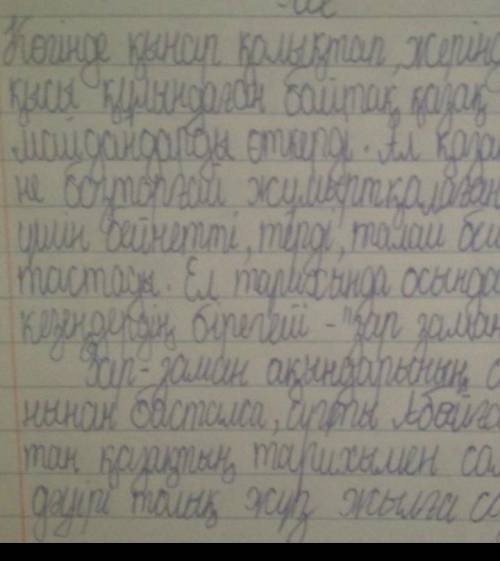 Көгінде қыңсар қалықтап, жерінд
қысы құлындаған байтақ қазақ
майдандарды өткерді. Ал қаза
не бозторғай жұмыртқалаған
үшін бейнетті, терді, талай
тастады. Ел тарихында осында
кезеңдердің бірегейі - "зар заман
Зар-заман ақындарының
нынан басталса, арты Абайға
тан қазақтың тарихымен са
дәуірі толық жүз жылға со